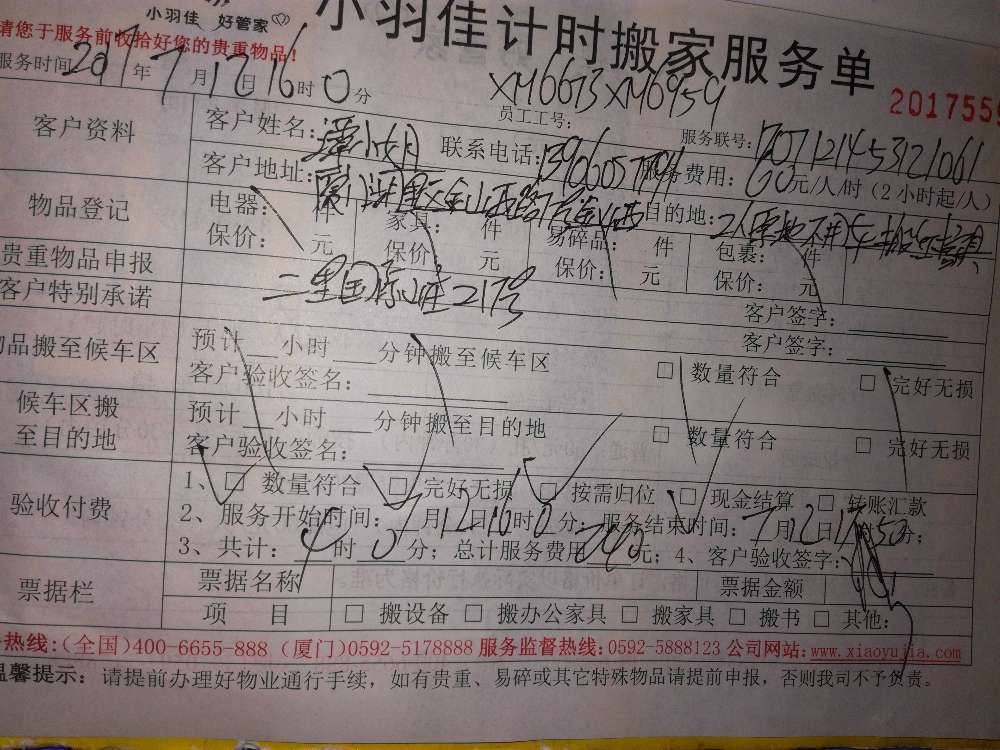 小羽佳 好管家
小羽佳计时搬家服务单
请您于服务前收拾好您的贵重物品!
服务时间 2017年7月12日16时0分
XM6673 XM0959
员工工号:
201755
服务联号: 1707121453121061
客户资料
客户姓名: 联系电话: 服务费用: 60元/人/时 (2小时起/人)
客户地址: 目的地:
物品登记
电器: 件 家具: 件 易碎品: 件 包裹: 件
保价: 元 保价: 元 保价: 元 保价: 元
贵重物品申报 二里国际 217号 客户签字:
客户特别承诺 客户签字:
物品搬至候车区
预计 小时 分钟搬至候车区 □ 数量符合 □ 完好无损
客户验收签名:
候车区搬
至目的地
预计 小时 分钟搬至目的地 □ 数量符合 □ 完好无损
客户验收签名:
验收付费
1、□ 数量符合 □ 完好无损 □ 按需归位 □ 现金结算 □ 转账汇款
2、服务开始时间: 7月12日16时0分; 服务结束时间: 7月12日 50分;
3、共计: 时 0分; 总计服务费用 元; 4、客户验收签字:
票据栏
票据名称 票据金额
项 目 □ 搬设备 □ 搬办公家具 □ 搬家具 □ 搬书 □ 其他:
热线:(全国)400-6655-888 (厦门)0592-5178888 服务监督热线:0592-5888123 公司网站:www.xiaoyujia.com
温馨提示: 请提前办理好物业通行手续，如有贵重、易碎或其它特殊物品请提前申报，否则我司不予负责。